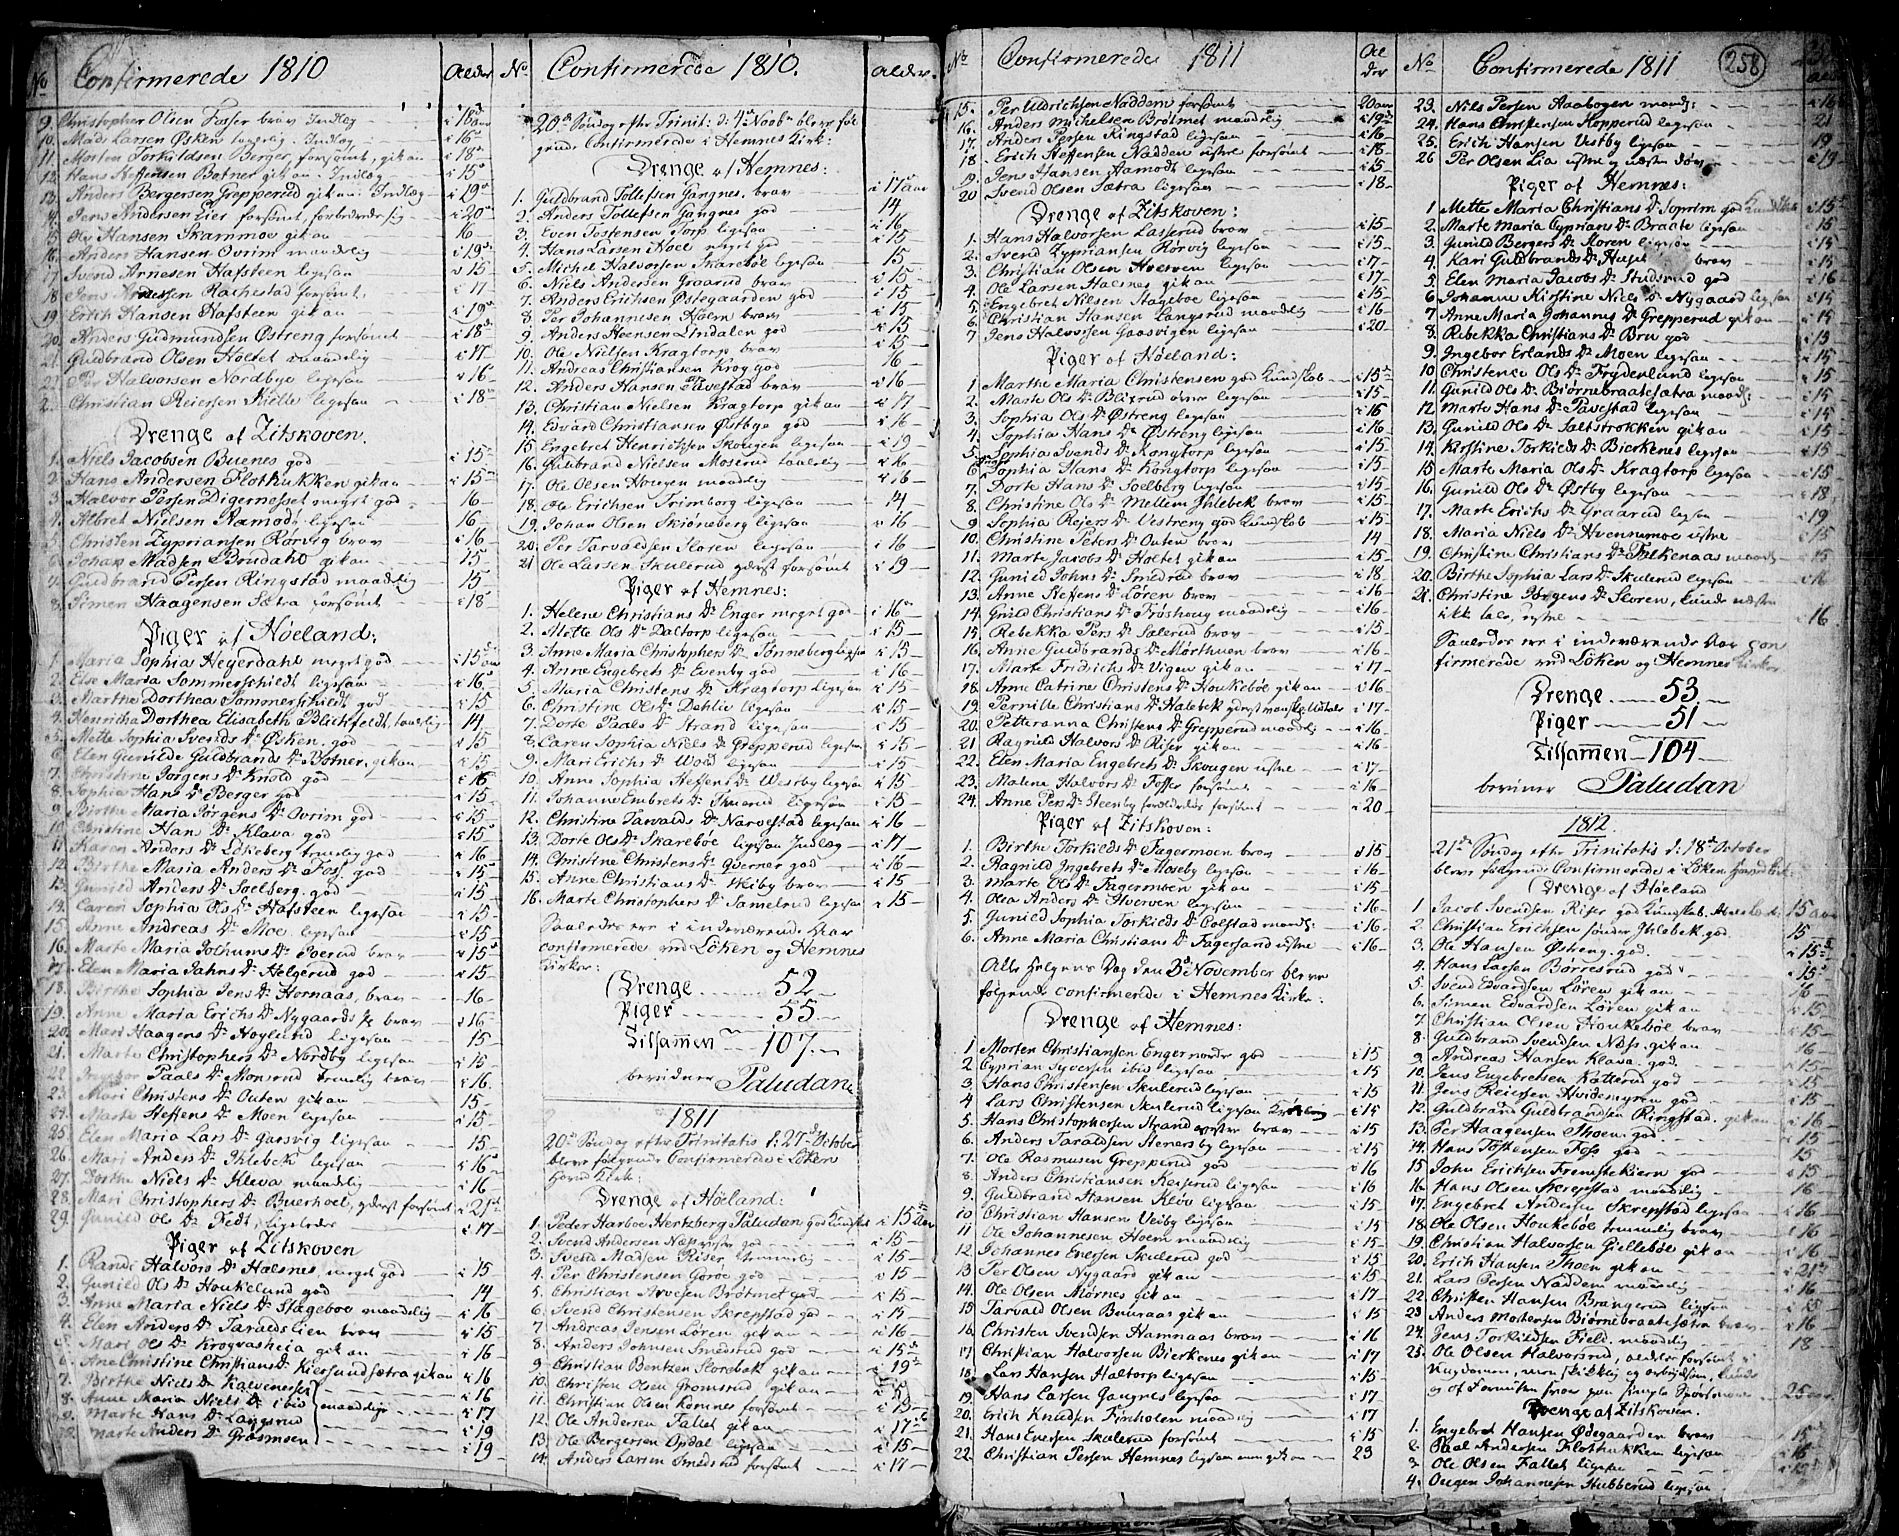 No Confirmerede 1810 Alder
9. Christopher Olsen Fosser brav Indlæg i 18 aar
10. Mads Larsen Øsken Indlæg i 16
11. Morten Torkildsen Berger, forsömt, gik an i 18
12. Hans Steffensen Batner gik an Indlæg i 15
13. Anders Bergersen Grepperud gik an Indlæg i 19
14. Jens Andersen Lier forsömt, forbedrede sig i 20
15 Ole Hansen Skammoe gik an 16
16. Anders Hansen Ovrim maadelig i 19
17 Svend Arnesen Hafsteen ligesaa i 15
18 Jens Rachestad forsömt i 17
19 Erich Hansen Hafsteen gik an i 19
20. Anders Gudmundsen Østreng forsömt i 18
21. Guldbrand Olsen Holtet maadelig i 17
22 Per Halvorsen Nordbye ligesaa i 16
2. Christian Reiersen Kielle ligesaa i 18
Drenge af Zitskoven.
1. Niels Jacobsen Buenes god i 15
2. Hans Andersen Flothukken gik an i 15
3. Halvor Persen Digernesset meget god 16
4. Albret Nielsen Hamodt ligesaa 16
5. Christen Zypriansen Rørvig brav i 16
6. Johan Madsen Brudahl gik an 15
7. Guldbrand Persen Ringstad maadelig 15
8. Simen Haagensen Sætra forsömt i 18
Piger af Höeland:
1. Maria Sophia Heyerdahl meget god i 15 aar
2. Else Maria Sommerschildt ligesaa i 16
3. Marthe Dorthea Sommerschildt god i 15
4. Henricha Dorthea Elisabeth Blichfeldt, taalelig 14
5. Mette Sophia Svends Dr Øsken god i 15
6 Elen Gunilde Guldbrands Dr Botner, gik an i 15
7. Christine Jörgens Dr Knold god i 16
8. Sophia Hans Dr Berger god i 15
9. Birthe Maria Jörgens Dr Ovrim god i 15
10. Christine Hans Dr Klava god i 15
11. Karen Anders Dr Lökeberg god i 16
12. Birthe Maria Anders Dr Foss. god i 15
13. Gunild Anders Dr Soelberg. god i 15
14. Caren Sophia Ols Dr Hafsteen ligesaa i 15
15. Anne Andreas Dr Moe ligesaa i 15
16. Marte Maria Dr brav i 15
17. Elen Maria Jahns Dr Helgerud god i 15
18. Birthe Sophia Jens Dr Hornaas, brav 16
19. Anne Maria Erichs Dr Nygaards brav i 16
20. Mari Haagens Dr Hoylund ligesaa 15
21. Marte Christophers Dr Nordby ligesaa i 15
22 Paals Dr Monsrud brav i 16
23. Mari Christens Dr Outen gik an 15
24. Marte Steffens Dr Moen ligesaa i 15
25. Elen Maria Lars Dr Garsvig ligesaa 15
26 Mari Anders Dr Ihlebek ligesaa i 16
27. Dorthe Niels Dr Kleva maadelig i 16
28. Mari Christophers Dr Buerhoel, yderst forsömt i 21
29. Gunild Ols Dr Tiedt, ligeledes i 17
Piger af Zitskoven
1. Randi Halvors Dr Halsnes meget god i 15
2. Gunild Ols Dr Houkelund god 14
3. Anne Maria Niels Dr Stageboe maadelig i 16
4. Elen Anders Dr Taraldslien brav i 15
5. Mari Ols Dr Krogvasheia gik an i 16
6. Ane Christine Christians Dr Kiersundsætra gik an i 16
7. Birthe Niels Dr Kalvenesset i 16
8. Anne Maria Niels Dr ibid maadelige i 17
9. Marte Hans Dr Langsrud i 19
10. Marte Anders Dr Græsmoen i 19
No. Confirmerede 1810. Alder.
20de Söndag efter Trinit: d: 4de Novbr bleve föl
gende Confirmerede i Hemnes Kirk:
Drenge af Hemnes:
1. Guldbrand Tollefsen Gangnes. brav i 17 aar
2. Anders Tollefsen Gangnes god 14
3. Even Tostensen Torp ligesaa i 16
4. Hans Larsen Koel meget god i 15
5. Michel Halvorsen Skareböl ligesaa 15
6. Niels Andersen Graarud brav i 15
7. Anders Erichsen Østegaarden god i 15
8 Per Johannesen Holm brav i 15
9. Anders Steensen Lindalen god i 15
10. Ole Nielsen Kragtorp brav i 15
11. Andreas Christiansen Krog god 16
12. Anders Hansen Tavestad brav i 16
13. Christian Nielsen Kragtorp gik an i 17
14. Edvard Christiansen Østbye god i 16
15 Engebret Henrichsen Skougen ligesaa i 19
16. Guldbrand Nielsen Moserud taalelig i 16
17. Ole Olsen Hougen maadelig i 16
18. Ole Erichsen Trimborg ligesaa 14
19. Johan Olsen Skiöneberg ligesaa i 16
20. Per Tarvaldsen Floren ligesaa i 16
21 Ole Larsen Skulerud yderst forsömt i 19
Piger af Hemnes:
1. Helene Christians Dr Enger meget god i 16
2. Mette Ols Dr Daltorp ligesaa i 15
3. Anne Maria Christophers Dr Tönnesberg ligesaa i 15
4. Anne Engebrets Dr Evenby god i 16
5. Maria Christens Dr Kragtorp ligesaa i 15
6. Christine Ols Dr Dehlie ligesaa i 15
7. Dorte Paals Dr Strand ligesaa i 15
8. Caren Sophia Niels Dr Grepperud ligesaa i 15
9. Mari Erichs Dr Wold ligesaa i 15
10. Anne Sophia Steffens Dr Westby ligesaa i 15
11. Johanne Embrets Dr ligesaa i 15
12. Christine Tarvalds Dr Narvestad ligesaa i 16
13. Dorte Ols Dr Skareböe ligesaa Indlæg i 17
14. Christine Christens Dr Qverner god i 16
15. Anne Christians Dr Wiby brav i 15
16. Marte Christophers Dr Samelrud ligesaa i 15
Saaledes ere i indeværende Aar
confirmerede ved Löken og Hemnes
Kirker:
Drenge 52
Piger 55
Tilsamen 107
bevidner Paludan
1811
20de Söndag efter Trinitatis d: 27de October
bleve fölgende Confirmerede i Löken
Hoved Kirk:
Drenge af Höeland:
1. Peder Harboe Hertzberg Paludan god Kundskab i 15 aar
2. Svend Andersen god i 15
3. Svend Madsen Riser i 15
4. Per Christensen Goroe god i 15
5. Christian Arvesen Brötmet god i 15
6. Svend Christensen Skrepstad god i 15
7. Andreas Jensen Lören gik an i 16
8. Anders Johnsen Smedsrud god i 15
9. Christian Bentzen Slorebek gik an i 19
10. Christen Olsen Gromsrud gik an
11. Christian Olsen Komnes forsömt i 15
12. Ole Andersen Fallet gik an i 17
13. Ole Bergersen Opdal ligesaa i 15
14. Anders Larsen Smedsrud forsömt i 17
No Confirmerede 1811 Alder
15. Per Uldrichsen Naddem forsömt 20 aar
16. Anders Michelsen Brötmet maadelig i 19
17. Anders Persen Ringstad ligesaa i 16
18. Erich Steffensen Nadden forsömt i 18
19. Jens Hansen Hamodt ligesaa i 15
20 Svend Olsen Sætra ligesaa i 18
Drenge af Zitskoven:
1. Hans Halvorsen Lasserud brav i 15
2. Svend Zypriansen Rörvig ligesaa i 15
3. Christian Olsen Hverven ligesaa i 17
4. Ole Larsen Halsnes gik an i 17
5. Engebret Nilsen Stageboe ligesaa i 15
6. Christian Hansen Langsrud maadelig i 16
7 Jens Halvorsen Gaasvigen ligesaa i 20
Piger af Höeland:
1 Marthe Maria Christensen god Kundskab i 15
2. Marte Ols Dr Blixrud ligesaa i 15
3. Sophia Ols Dr Østreng ligesaa i 16
4. Sophia Hans Dr Østreng ligesaa i 16
5 Sophia Svends Dr Kongtorp ligesaa i 15
6 Sophia Hans Dr Kongtorp ligesaa i 15
7. Dorte Hans Dr Soelberg ligesaa i 15
8. Christine Ols Dr Mellem Ihlebek brav i 15
9. Sophia Rejers Dr Vestreng god Kundskab i 15
10. Christine Peters Dr Outen brav 14
11. Marte Jacobs Dr Holtet gik an i 15
12. Gunild Johns Dr Smedrud brav i 18
13. Anne Steffens Dr Lören brav i 16
14 Gunild Christophers Dr maadelig i 16
15 Rebekka Pers Dr Salerud brav i 15
16 Anne Guldbrands Dr Mörthuen brav i 16
17. Marte Fridrichs Dr Vigen gik an i 17
18 Anne Catrine Christens Dr Houkeböe gik an i 16
19 Pernille Christians Dr Halebek yderst i 17
20. Petteranna Christens Dr Grepperud maadelig i 16
21 Ragnild Halvors Dr Riser gik an i 16
22. Elen Maria Engebrets Dr Skougen i 17
23. Malene Halvors Dr Fosser forsömt i 16
24. Anne Pers Dr Steenby forsömt i 20
Piger af Zitskoven:
1. Birthe Torkilds Dr Fagermoen brav i 15
2. Ragnild Ingebrets Dr Moseby ligesaa i 16
3. Marte Ols Dr Fagermoen gik an i 15
4. Olea Anders Dr Hverven ligesaa i 16
5. Gunild Sophia Torkilds Dr Colstad i 16
6. Anne Maria Christians Dr Fagersand i 16
Alle Helgens Dag den 3de November bleve
fölgende confirmerede i Hemnes Kirke:
Drenge af Hemnes:
1 Morten Christiansen Enger nordre god i 15
2 Cyprian Syversen ibid ligesaa i 15
3. Hans Christensen Skulerud ligesaa i 15
4 Lars Christensen Skulerud ligesaa i 15
5. Hans Christophersen Strand brav i 15
6. Anders Taraldsen Stenersby ligesaa i 15
7. Ole Rasmusen Grepperud god i 16
8. Anders Christiansen Kesserud ligesaa i 16
9. Guldbrand Hansen Klöv ligesaa i 15
10 Christian Hansen Veiby ligesaa i 15
11 Ole Johannesen Hoem maadelig i 15
12. Johannes Enersen Skulerud god i 15
13 Per Olsen Nygaard gik an i 15
14. Ole Olsen Mörnes gik an i 17
15 Tarvald Olsen Buuraas gik an i 15
16. Christen Svendsen Hamnaas brav i 16
17 Christian Halvorsen Bierkenes gik an i 17
18. Lars Hansen Haltorp ligesaa i 15
19. Hans Larsen Gangnes ligesaa i 17
20. Erich Knudsen Finholen maadelig i 17
21. Hans Enersen Skulerud forsömt i 15
22. Christian Persen Hemnes ligesaa 23
No Confirmerede 1811 258
23. Nils Persen Aabogen maadl: i 16
24. Hans Christensen Hopperud ligesaa 21
25. Erich Hansen Vestby ligesaa 19
26 Per Olsen Lia og næsten döv i 19
Piger af Hemnes:
1 Mette Maria Christians Dr Soprim god Kundskab i 15
2. Marte Maria Cyprians Dr Braate ligesaa i 15
3. Gunild Bergers Dr Floren ligesaa i 15
4. Kari Guldbrands Dr Huset brav i 15
5. Elen Maria Jacobs Dr Studsrud god i 16
6 Johanne Kirstine Niels Dr Nygaard ligesaa i 15
7 Anne Maria Johannes Dr Grepperud gik an i 15
8. Rebekka Christians Dr Bru god i 15
9. Ingebor Erlands Dr Moen ligesaa i 15
10 Christence Ols Dr Frydenlund ligesaa i 15
11. Gunild Ols Dr Biörnebraatesætra maadl: i 15
12. Marte Hans Dr Tavestad ligesaa i 15
13. Gunild Ols Dr Saltstrokken gik an i 15
14. Kirstine Torkilds Dr Bierkenes ligesaa i 15
15 Marte Maria Ols Dr Kragtorp ligesaa i 15
16. Gunild Ols Dr Østby ligesaa i 18
17. Marte Erichs Dr Graarud ligesaa i 19
18. Maria Niels Dr Hvennumoe i 15
19. Christine Christians Dr Falkenaas maadl 15
20. Birthe Sophia Lars Dr Skulerud ligesaa i 16
21. Christine Jörgens Dr Floren, kunde næsten
ikke tale, i 16
Saaledes ere i indeværende Aar con
firmerede ved Löken og Hemnes Kirker
Drenge 53
Piger 51
Tilsamen 104
bevidner Paludan
1812.
21de Söndag efter Trinitatis d: 18de October
bleve fölgende Confirmerede i Löken Hoved Kirk:
Drenge af Höeland
1 Jacob Svendsen Riser god Kundskab 15 aar
2 Christian Erichsen sönder Ihlebek god 15
3. Ole Hansen Østreng god i 15
4. Hans Larsen Börresrud god i 15
5 Svend Edvardsen Lören gik an 16
6. Simen Edvardsen Lören gik an i 15
7 Christian Olsen Houkeböe brav i 15
8. Guldbrand Svendsen Næss. gik an 16
9. Andreas Hansen Klava god i 15
10. Jens Engebretsen Katterud god i 15
11. Jens Reiersen Hvidemyren god i 15
12. Guldbrand Guldbrandsen Ringstad. gik an i 16
13. Per Haagensen Thoen god i 15
14. Hans Tostensen Foss god 15
15 John Erichsen Fremstekiern god i 15
16. Hans Olsen Skrepstad maadelig 16
17. Engebret Andersen Skrepstad ligesaa i 16
18. Ole Olsen Houkeböe brav i 15
19. Christian Halvorsen Gielleböe gik an i 16
20. Erich Hansen Thoen gik an i 21
21. Lars Persen Naddem maadelig i 16
22 Christen Hansen Brangerud ligesaa i 15
23 Anders Mortensen Biörnebraatesætra brav i 16
24. Jens Torkildsen Field maadelig 18
25. Ole Olsen Halvorsrud, aldeles forsömt i
Ungdommen, men skikkelig og arbejdsom, kunde
og af Formulen svare paa simple Spörsmaale 25 aar
Drenge af Zitskoven.
1. Engebret Hansen Ödegaarden brav 15
2. Paal Andersen Flothukken ligesaa i 16
3. Ole Olsen Fallet ligesaa i 15
4. Ougen Johannesen Hubberud ligesaa